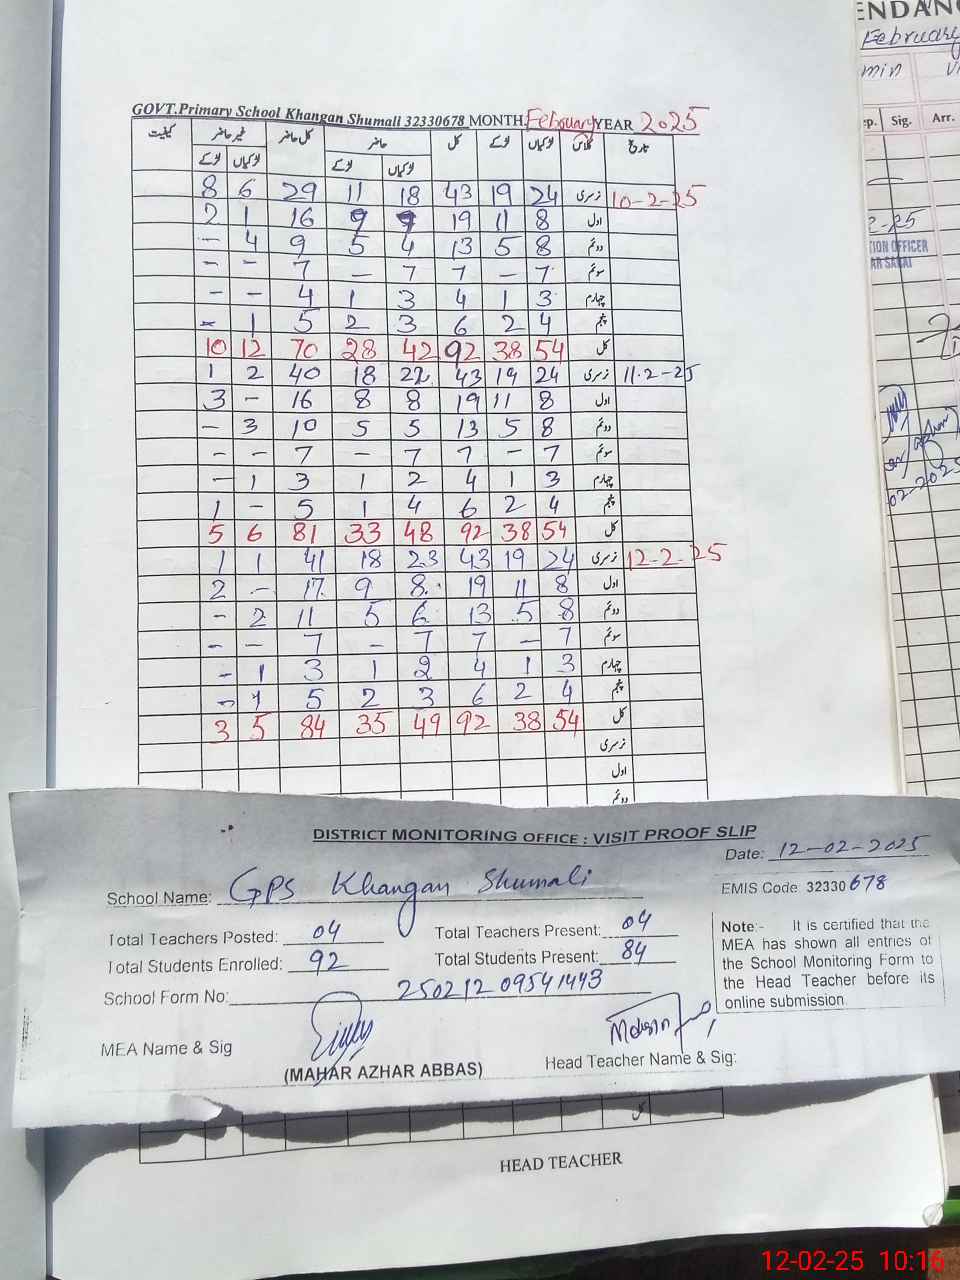 ENDAN
February
min
GOVT.Primary School Khangan Shumali 32330678 MONTH. February YEAR 2025
کیفیت غیر حاضر کل حاضر حاضر کل لڑکے لڑکیاں کلاس تاریخ
لڑکے لڑکیاں لڑکے لڑکیاں
ep. Sig. Arr.
8 6 29 11 18 43 19 24 نرسری 10-2-25
2 1 16 9 7 19 11 8 اول
- 4 9 5 4 13 5 8 دوئم
- - 7 - 7 7 - 7 سوئم
- - 4 1 3 4 1 3 چہارم
- 1 5 2 3 6 2 4 پنجم
10 12 70 28 42 92 38 54 کل
1 2 40 18 22 43 19 24 نرسری 11.2-25
3 - 16 8 8 19 11 8 اول
- 3 10 5 5 13 5 8 دوئم
- - 7 - 7 7 - 7 سوئم
- 1 3 1 2 4 1 3 چہارم
1 - 5 1 4 6 2 4 پنجم
5 6 81 33 48 92 38 54 کل
1 1 41 18 23 43 19 24 نرسری 12-2-25
2 - 17 9 8 19 11 8 اول
- 2 11 5 6 13 5 8 دوئم
- - 7 - 7 7 - 7 سوئم
- 1 3 1 2 4 1 3 چہارم
- 1 5 2 3 6 2 4 پنجم
3 5 84 35 49 92 38 54 کل
نرسری
اول
دوئم
2-25
TION OFFICER
AR SARAI
02-2025
DISTRICT MONITORING OFFICE : VISIT PROOF SLIP
Date: 12-02-2025
School Name: GPS Khangan Shumali
EMIS Code 32330678
Total Teachers Posted: 04 Total Teachers Present: 04
Total Students Enrolled: 92 Total Students Present: 84
School Form No: 250212 09541443
Note:- It is certified that the
MEA has shown all entries of
the School Monitoring Form to
the Head Teacher before its
online submission
MEA Name & Sig
(MAHAR AZHAR ABBAS)
Head Teacher Name & Sig:
کل
HEAD TEACHER
12-02-25 10:16